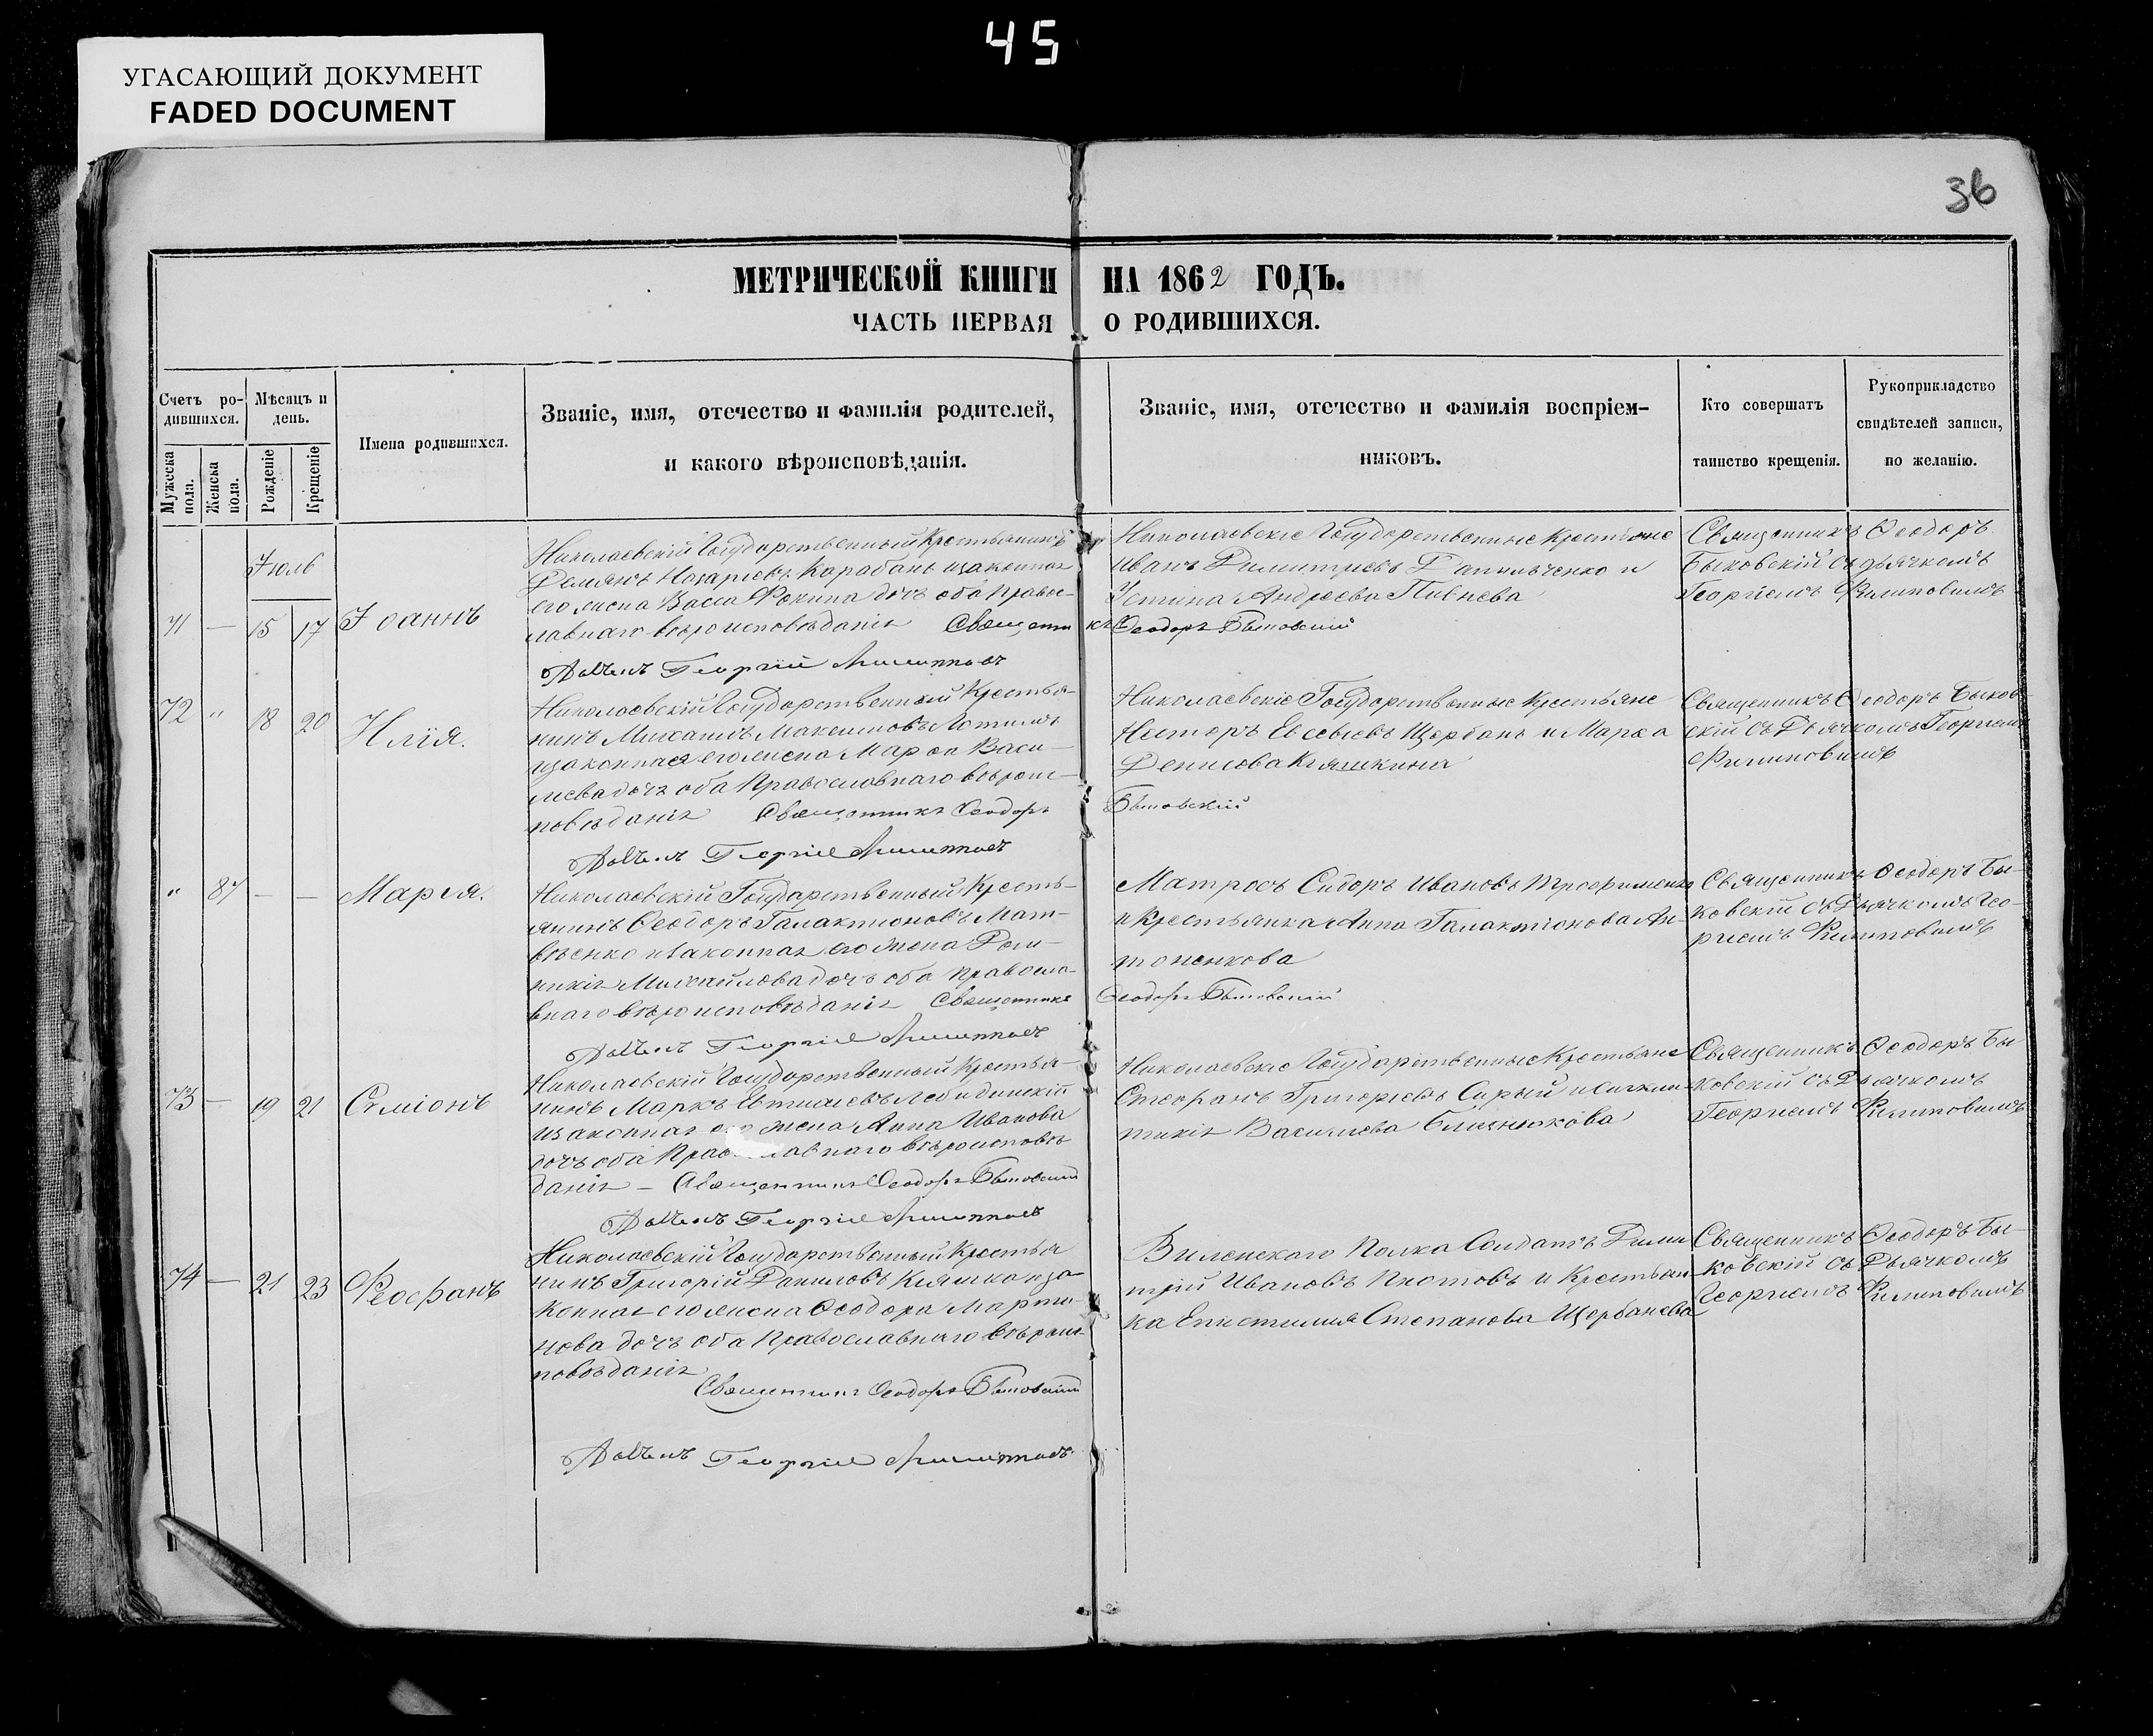 45
УГАСАЮЩИЙ ДОКУМЕНТ
FADED DOCUMENT
36
МЕТРИЧЕСКОЙ КНИГИ НА 1862 ГОДЪ.
ЧАСТЬ ПЕРВАЯ О РОДИВШИХСЯ.
Счетъ ро-
дившихся.
Мужеска пола.
Женска пола.
Мѣсяцъ и
день.
Рожденіе
Крещеніе
Имена родившихся.
Званіе, имя, отечество и фамилія родителей,
и какого вѣроисповѣданія.
Званіе, имя, отечество и фамилія воспріем-
никовъ.
Кто совершатъ
таинство крещенія.
Рукоприкладство
свидѣтелей записи,
по желанію.
Іюль
71 — 15 17 Іоаннъ
Николаевскій Государственный Крестьянинъ
Демянъ Назаріевъ Карабанъ изаконная
его жена Васса Фокина дочь оба Правос-
лавнаго вѣроисповѣданія Священникъ Ѳеодоръ Быковскій
Дьячекъ Георгій Филипповъ
Николаевскіе Государственные Крестьяне
Иванъ Димитріевъ Данильченко и
Устина Андреева Пивнева
Священникъ Ѳеодоръ
Быковскій съ дьячкомъ
Георгіемъ Филиповымъ
72 " 18 20 Илія.
Николаевскій Государственный Крестья-
нинъ Михаилъ Максимовъ
изаконная его жена Марѳа Васи-
лева дочь оба Православнаго вѣроис-
повѣданія Священникъ Ѳеодоръ Быковскій
Дьячекъ Георгій Филипповъ
Николаевскіе Государственные Крестьяне
Несторъ Евсевіевъ Щербань и Марѳа
Денисова Кияшкина
Священникъ Ѳеодоръ Быков-
скій съ Дьячкомъ Георгіемъ
Филиповымъ
" 87 — — Марія.
Николаевскій Государственный Кресть-
янинъ Ѳеодоръ Галактионовъ Мат-
вѣенко изаконная его жена Доми-
никія Михайлова дочь оба Правосла-
внаго вѣроисповѣданія Священникъ Ѳеодоръ Быковскій
Дьячекъ Георгій Филипповъ
Матросъ Сидоръ Ивановъ Трофименко
и Крестьянка Анна Галактіонова Ан-
тоненкова
Священникъ Ѳеодоръ Бы-
ковскій съ Дьячкомъ Гео-
ргіемъ Филиповымъ
73 — 19 21 Симіонъ
Николаевскій Государственный Крестья-
нинъ Маркъ Евтихіевъ Лебидинскій
изаконная его жена Анна Иванова
дочь оба Православнаго вѣроисповѣ
данія — Священникъ Ѳеодоръ Быковскій
Дьячекъ Георгій Филипповъ
Николаевскіе Государственные Крестьяне
Стефанъ Григоріевъ Сирый и
Василіева Близнюкова
Священникъ Ѳеодоръ Бы
ковскій съ Дьячкомъ
Георгіемъ Филиповымъ
74 — 21 23 Феофанъ
Николаевскій Государственный Крестья
нинъ Григорій Даниловъ Кияшко иза-
конная его жена Ѳеодора Марти-
нова дочь оба Православнаго вѣроис-
повѣданія
Священникъ Ѳеодоръ Быковскій
Дьячекъ Георгій Филипповъ
Виленскаго Полка Солдатъ Дими
трій Ивановъ и Крестьян
ка Епистимия Степанова Щербанева
Священникъ Ѳеодоръ Бы-
ковскій съ Дьячкомъ
Георгіемъ Филиповымъ